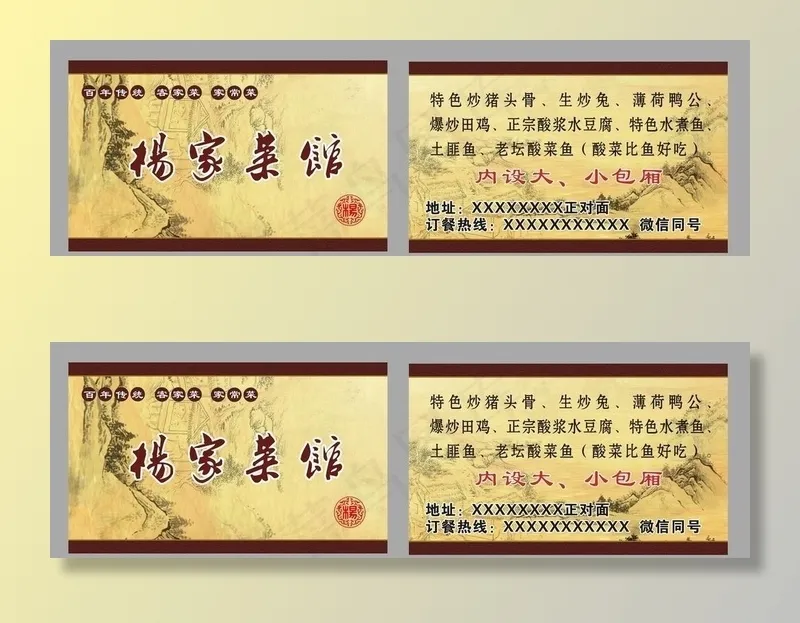 百年传统 客家菜 家常菜
杨家菜馆
楊
特色炒猪头骨、生炒兔、薄荷鸭公、
爆炒田鸡、正宗酸浆水豆腐、特色水煮鱼、
土匪鱼、老坛酸菜鱼（酸菜比鱼好吃）
内设大、小包厢
地址：XXXXXXXX正对面
订餐热线：XXXXXXXXXXX 微信同号
百年传统 客家菜 家常菜
杨家菜馆
楊
特色炒猪头骨、生炒兔、薄荷鸭公、
爆炒田鸡、正宗酸浆水豆腐、特色水煮鱼、
土匪鱼、老坛酸菜鱼（酸菜比鱼好吃）
内设大、小包厢
地址：XXXXXXXX正对面
订餐热线：XXXXXXXXXXX 微信同号